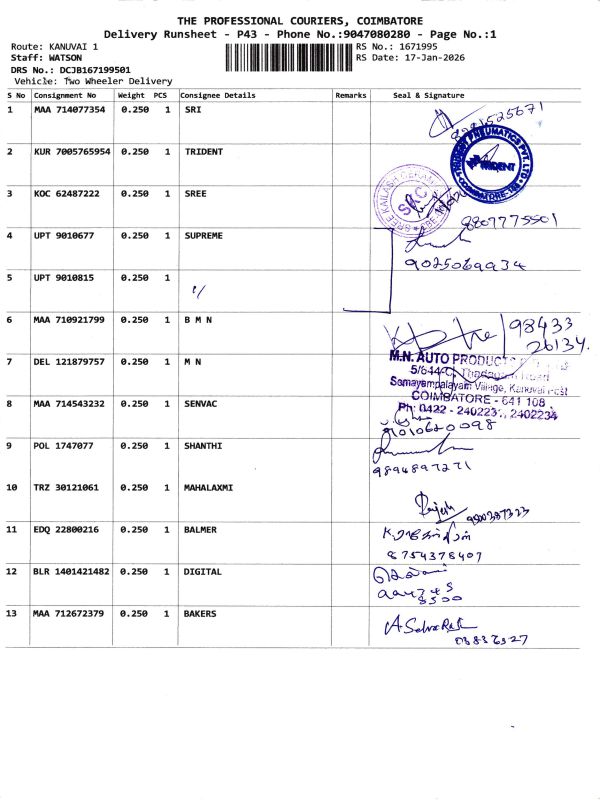 THE PROFESSIONAL COURIERS, COIMBATORE
Delivery Runsheet - P43 - Phone No.:9047080280 - Page No.:1
Route: KANUVAI 1
RS No.: 1671995
Staff: WATSON
RS Date: 17-Jan-2026
DRS No.: DCJB167199501
Vehicle: Two Wheeler Delivery
S No Consignment No Weight PCS Consignee Details Remarks Seal & Signature
1 MAA 714077354 0.250 1 SRI
2 KUR 7005765954 0.250 1 TRIDENT
TRIDENT PNEUMATICS PVT. LTD.
TRIDENT
3 KOC 62487222 0.250 1 SREE
SRC
8807775501
4 UPT 9010677 0.250 1 SUPREME
9025069934
5 UPT 9010815 0.250 1
6 MAA 710921799 0.250 1 B M N
98433
26134.
7 DEL 121879757 0.250 1 M N
M.N. AUTO PRODUCTS
5/644-C, Thadagam Road
Somayampalayam Village, Kanuvai Post
COIMBATORE - 641 108
Ph: 0422 - 2402231, 2402234
8 MAA 714543232 0.250 1 SENVAC
9010620098
9 POL 1747077 0.250 1 SHANTHI
9894897271
10 TRZ 30121061 0.250 1 MAHALAXMI
Rajesh
9800387323
11 EDQ 22800216 0.250 1 BALMER
8754378407
12 BLR 1401421482 0.250 1 DIGITAL
8500
13 MAA 712672379 0.250 1 BAKERS